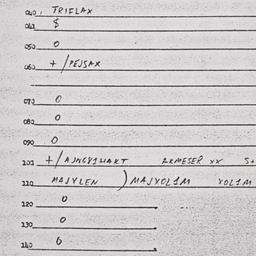 040. TRIFLAX
041 $
050. 0
060. + /PEJSAX
070 0
080. 0
090 0
100 +/ XX S+
110 MAJVLEN ) MAJVOLIM VOLIM
120 0
130 0
140 0